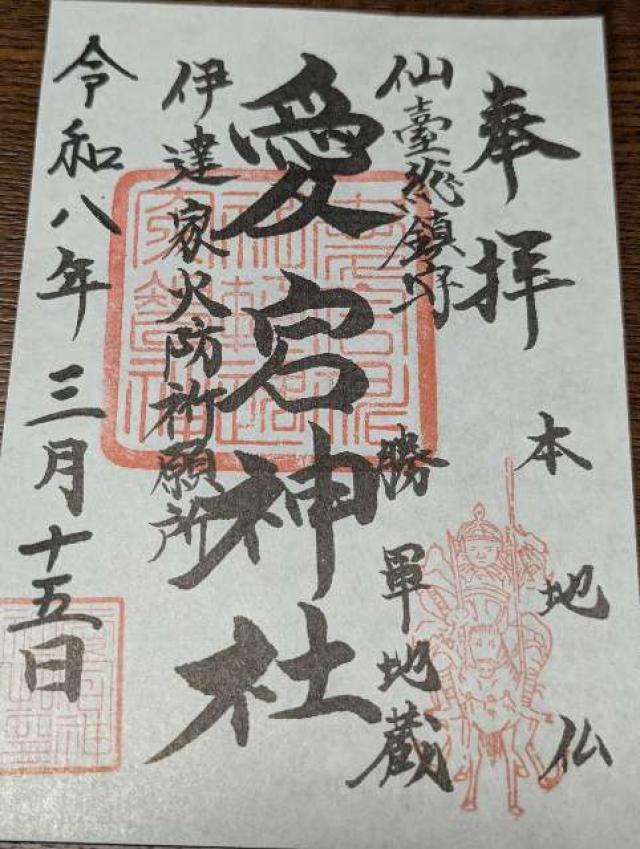 奉拝
本地仏
仙臺総鎮守
勝軍地蔵
愛宕神社
伊達家火防祈願所
令和八年三月十五日